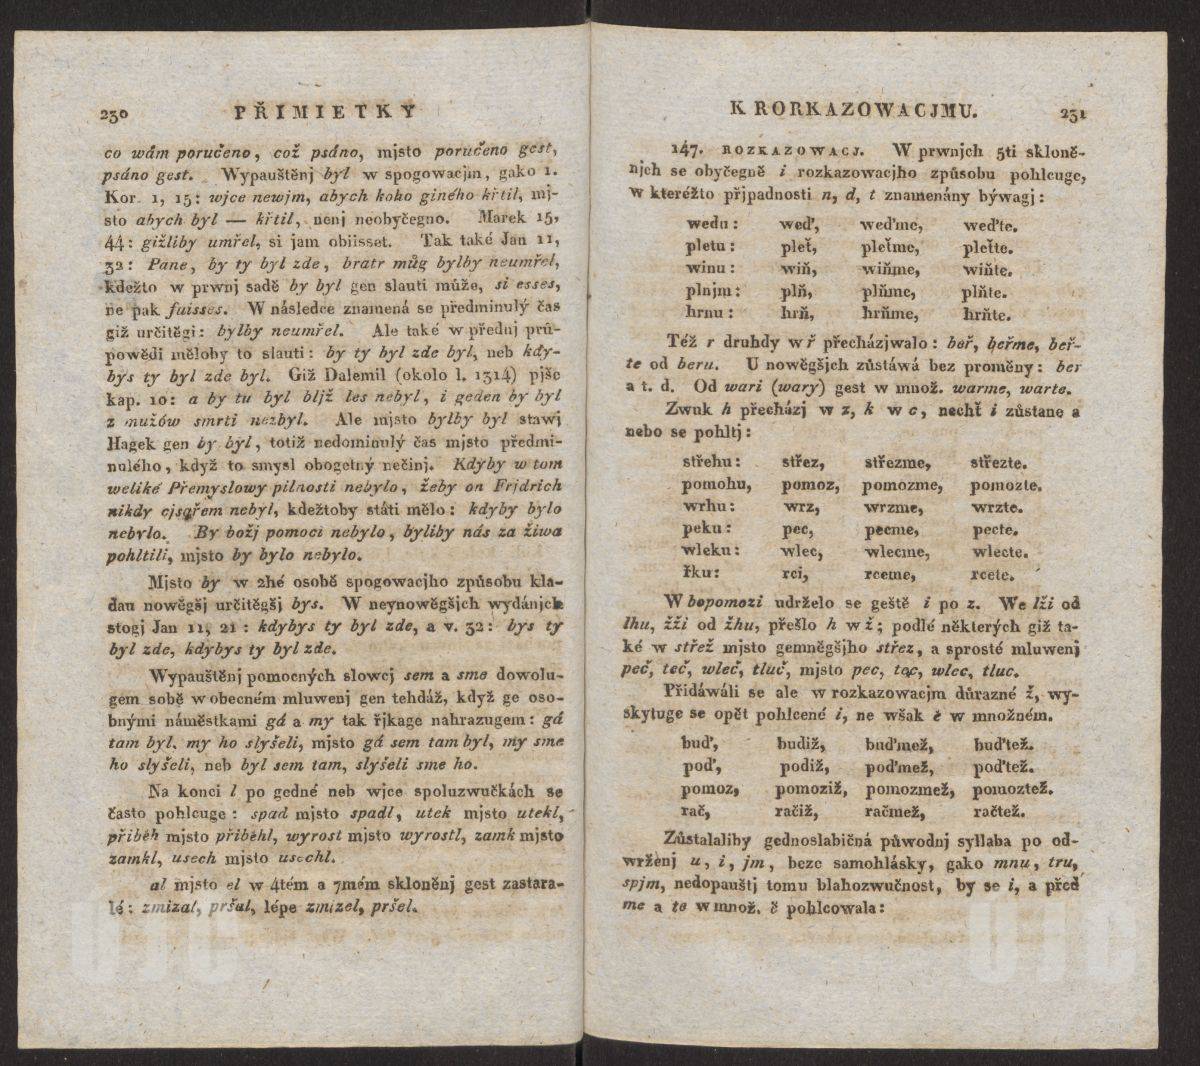 230 PŘIMIETKY
co wám poručeno, což psáno, mjsto poručeno gest,
psáno gest. Wypauštěnj byl w spogowacjm, gako 1.
Kor. 1, 15: wjce newjm, abych koho giného křtil, mj-
sto abych byl — křtil, nenj neobyčegno. Marek 15,
44: gižliby umřel, si jam obiisset. Tak také Jan 11,
32: Pane, by ty byl zde, bratr můg bylby neumřel,
kdežto w prwnj sadě by byl gen slauti může, si esses,
ne pak fuisses. W následce znamená se předminulý čas
giž určitěgi: bylby neumřel. Ale také w přednj prů-
powědi měloby to slauti: by ty byl zde byl, neb kdy-
bys ty byl zde byl. Giž Dalemil (okolo l. 1314) pjše
kap. 10: a by tu byl bljž les nebyl, i geden by byl
z mužów smrti nezbyl. Ale mjsto bylby byl stawj
Hagek gen by byl, totiž nedominulý čas mjsto předmi-
nulého, když to smysl obogetný nečinj. Kdyby w tom
weliké Přemyslowy pilnosti nebylo, žeby on Fridrich
nikdy cjsařem nebyl, kdežtoby státi mělo: kdyby bylo
nebylo. By božj pomoci nebylo, byliby nás za žiwa
pohltili, mjsto by bylo nebylo.
Mjsto by w 2hé osobě spogowacjho způsobu kla-
dau nowěgšj určitěgšj bys. W neynowěgšjch wydánjch
stogj Jan 11, 21: kdybys ty byl zde, a v. 32: bys ty
byl zde, kdybys ty byl zde.
Wypauštěnj pomocných slowcj sem a sme dowolu-
gem sobě w obecném mluwenj gen tehdáž, když ge oso-
bnými náměstkami gá a my tak řjkage nahrazugem: gá
tam byl, my ho slyšeli, mjsto gá sem tam byl, my sme
ho slyšeli, neb byl sem tam, slyšeli sme ho.
Na konci l po gedné neb wjce spoluzwučkách se
často pohlcuge: spad mjsto spadl, utek mjsto utekl,
přiběh mjsto přiběhl, wyrost mjsto wyrostl, zamk mjsto
zamkl, usech mjsto usechl.
al mjsto el w 4tém a 7mém skloněnj gest zastara-
lé: zmizal, pršal, lépe zmizel, pršel.
K RORKAZOWACJMU. 231
147. ROZKAZOWACJ. W prwnjch 5ti skloně-
njch se obyčegně i rozkazowacjho způsobu pohlcuge,
w kteréžto přjpadnosti n, d, t znamenány býwagj:
wedu: weď, weďme, weďte.
pletu: pleť, pleťme, pleťte.
winu: wiň, wiňme, wiňte.
plnjm: plň, plňme, plňte.
hrnu: hrň, hrňme, hrňte.
Též r druhdy w ř přecházjwalo: beř, beřme, beř-
te od beru. U nowěgšjch zůstáwá bez proměny: ber
a t. d. Od wari (wary) gest w množ. warme, warte.
Zwuk h přecházj w z, k w c, nechť i zůstane a
nebo se pohltj:
střehu: střez, střezme, střezte.
pomohu, pomoz, pomozme, pomozte.
wrhu: wrz, wrzme, wrzte.
peku: pec, pecme, pecte.
wleku: wlec, wlecme, wlecte.
řku: rci, rceme, rcete.
W bopomozi udrželo se geště i po z. We lži od
lhu, žži od žhu, přešlo h w ž; podlé některých giž ta-
ké w střež mjsto gemněgšjho střez, a sprosté mluwenj
peč, teč, wleč, tluč, mjsto pec, tec, wlec, tluc.
Přidáwáli se ale w rozkazowacjm důrazné ž, wy-
skytuge se opět pohlcené i, ne wšak ě w množném.
buď, budiž, buďmež, buďtež.
poď, podiž, poďmež, poďtež.
pomoz, pomoziž, pomozmež, pomoztež.
rač, račiž, račmež, račtež.
Zůstalaliby gednoslabičná půwodnj syllaba po od-
wrženj u, i, jm, beze samohlásky, gako mnu, tru,
spjm, nedopauštj tomu blahozwučnost, by se i, a před
me a te w množ. ě pohlcowala: